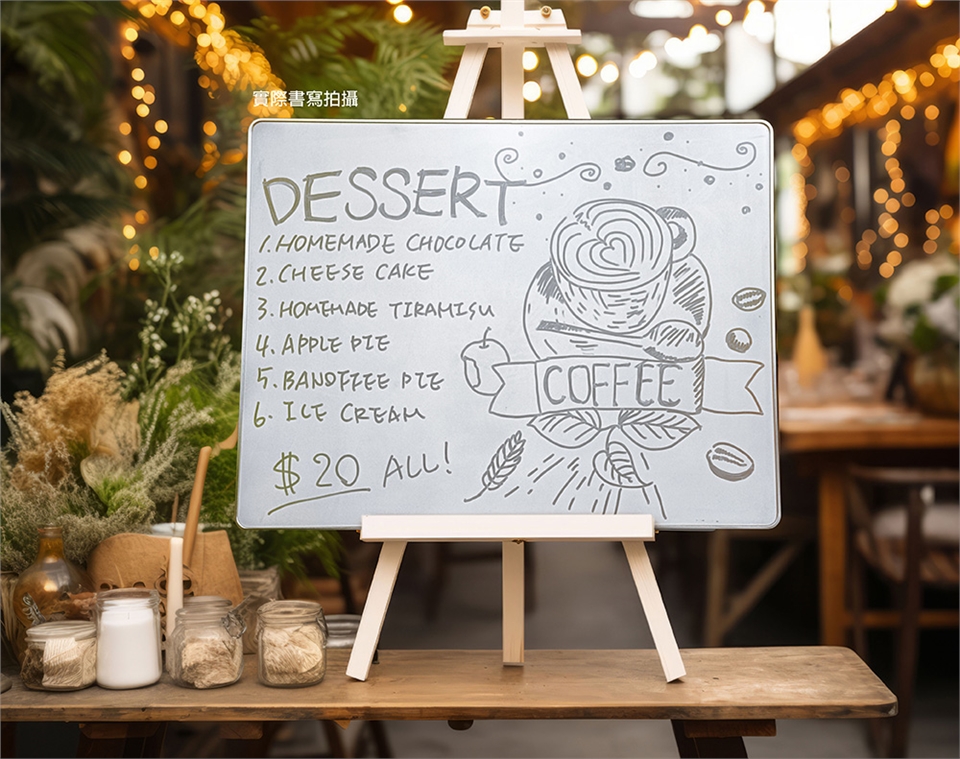 實際書寫拍攝
DESSERT
1. HOMEMADE CHOCOLATE
2. CHEESE CAKE
3. HOMEMADE TIRAMISU
4. APPLE PIE
5. BANOFFEE PIE
6. ICE CREAM
$20 ALL!
COFFEE